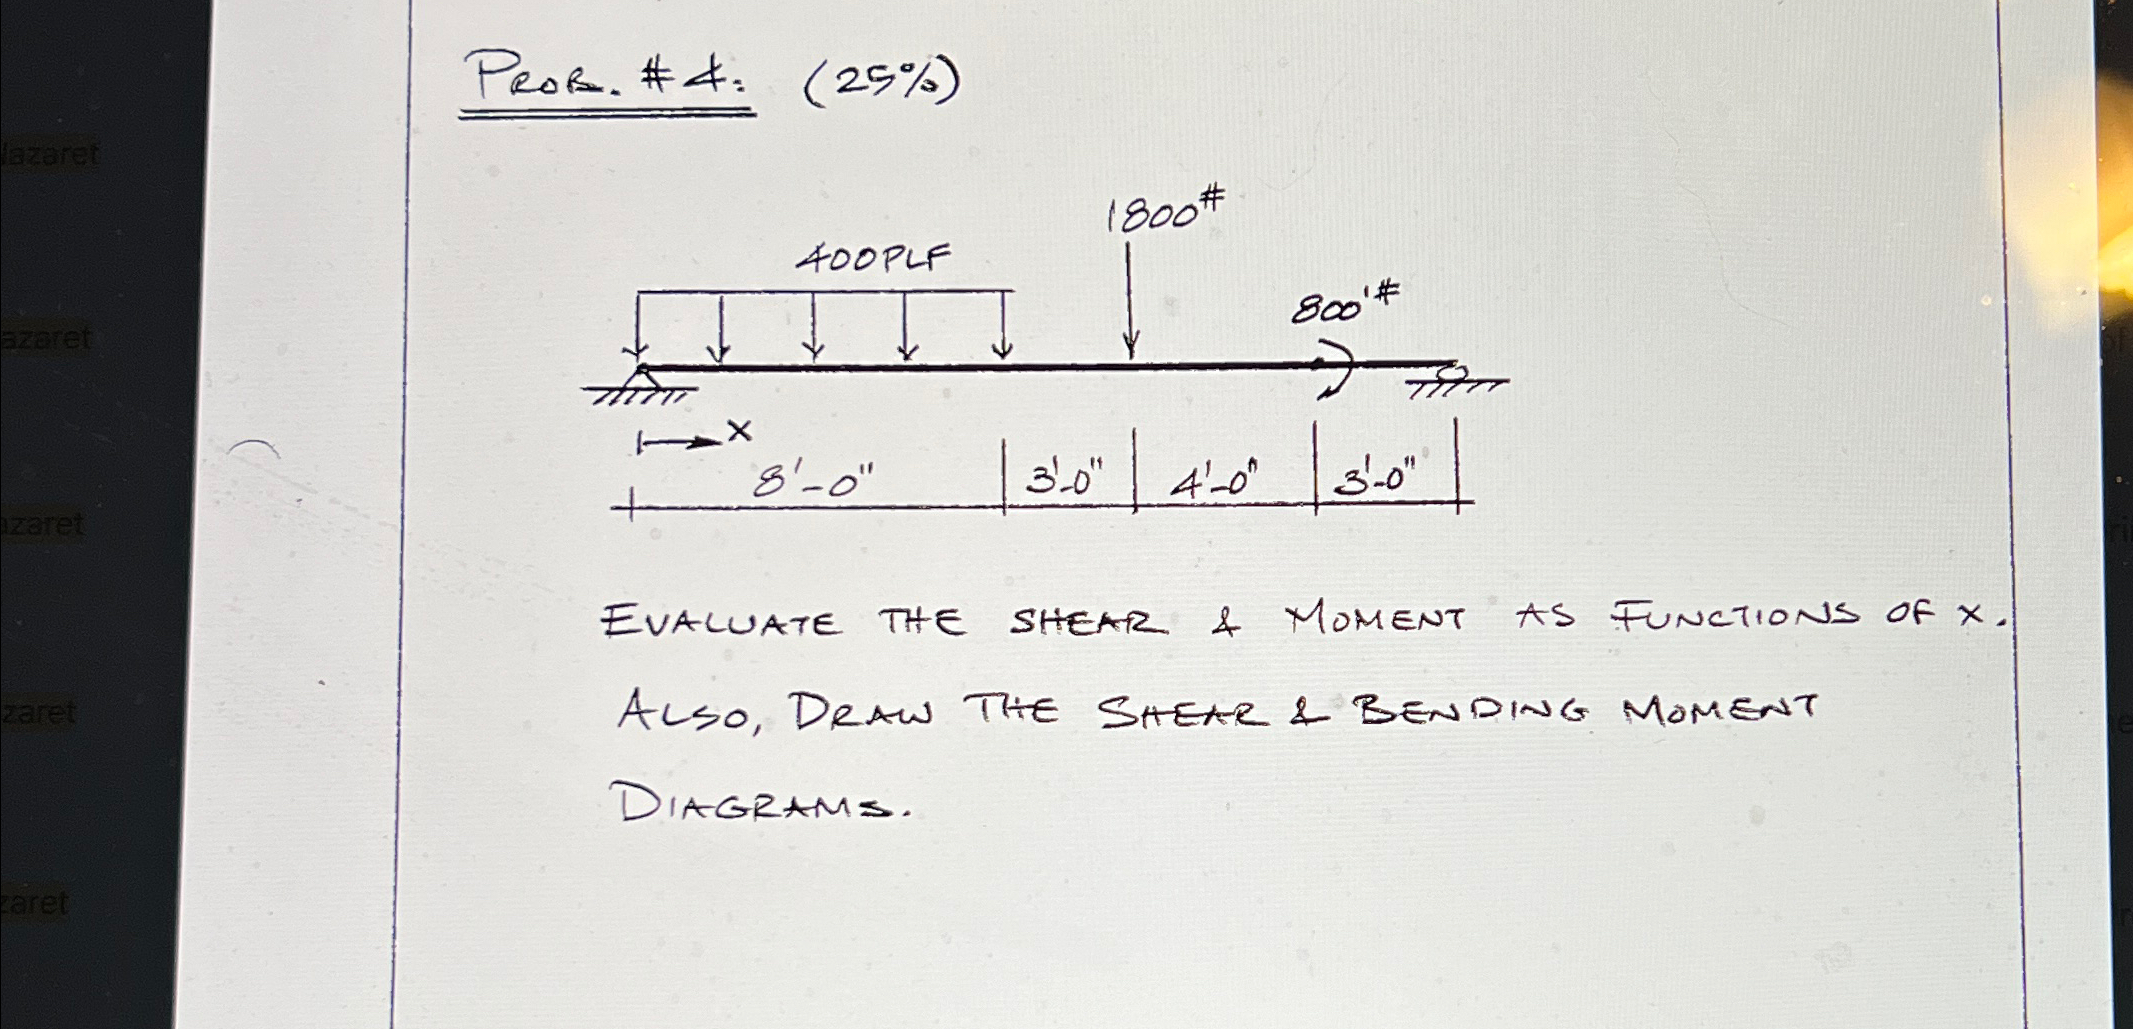 PROB. #4: (25%)
1800#
400PLF
800'#
x
8'-0" 3'-0" 4'-0" 3'-0"
EVALUATE THE SHEAR & MOMENT AS FUNCTIONS OF x.
ALSO, DRAW THE SHEAR & BENDING MOMENT
DIAGRAMS.
azaret
azaret
zaret
zaret
zaret